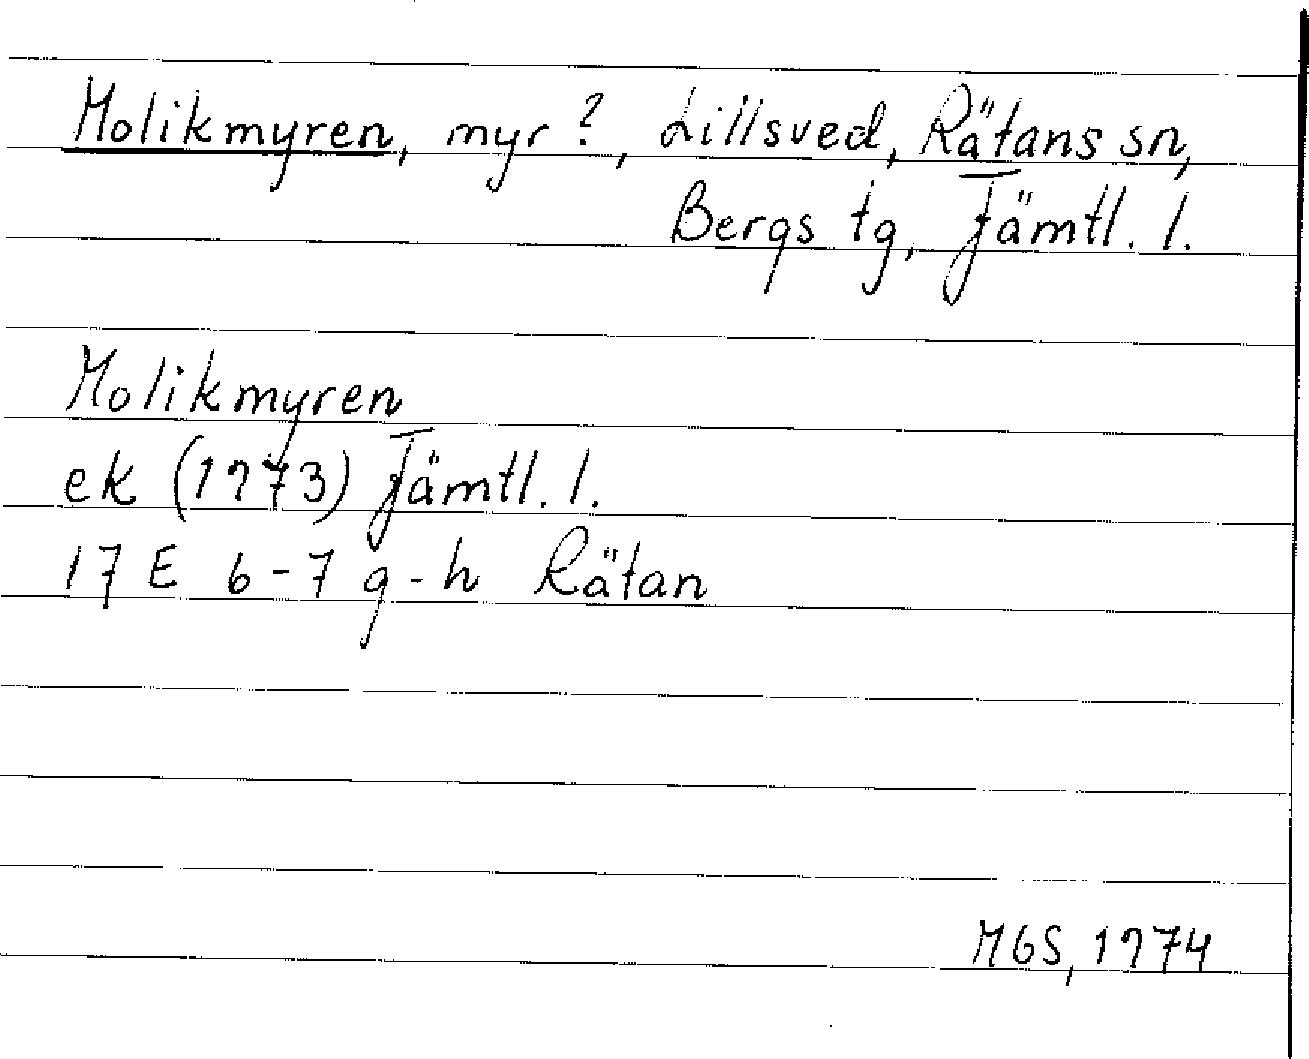 Molikmyren, myr?, Lillsved, Rätans sn,
Bergs tg, Jämtl. l.
Molikmyren
ek (1973) Jämtl. l.
17 E 6-7 g-h Rätan
MGS, 1974